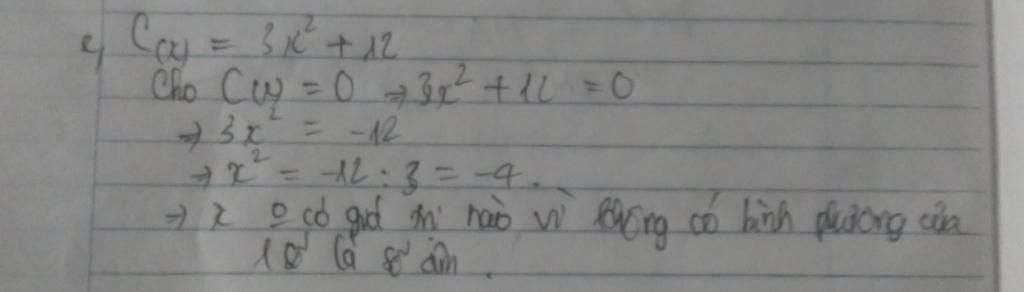 c) C(x) = 3x² + 12
Cho C(x) = 0 → 3x² + 12 = 0
→ 3x² = -12
→ x² = -12 : 3 = -4.
→ x o có giá trị nào vì không có bình phương của
1 số là số âm.